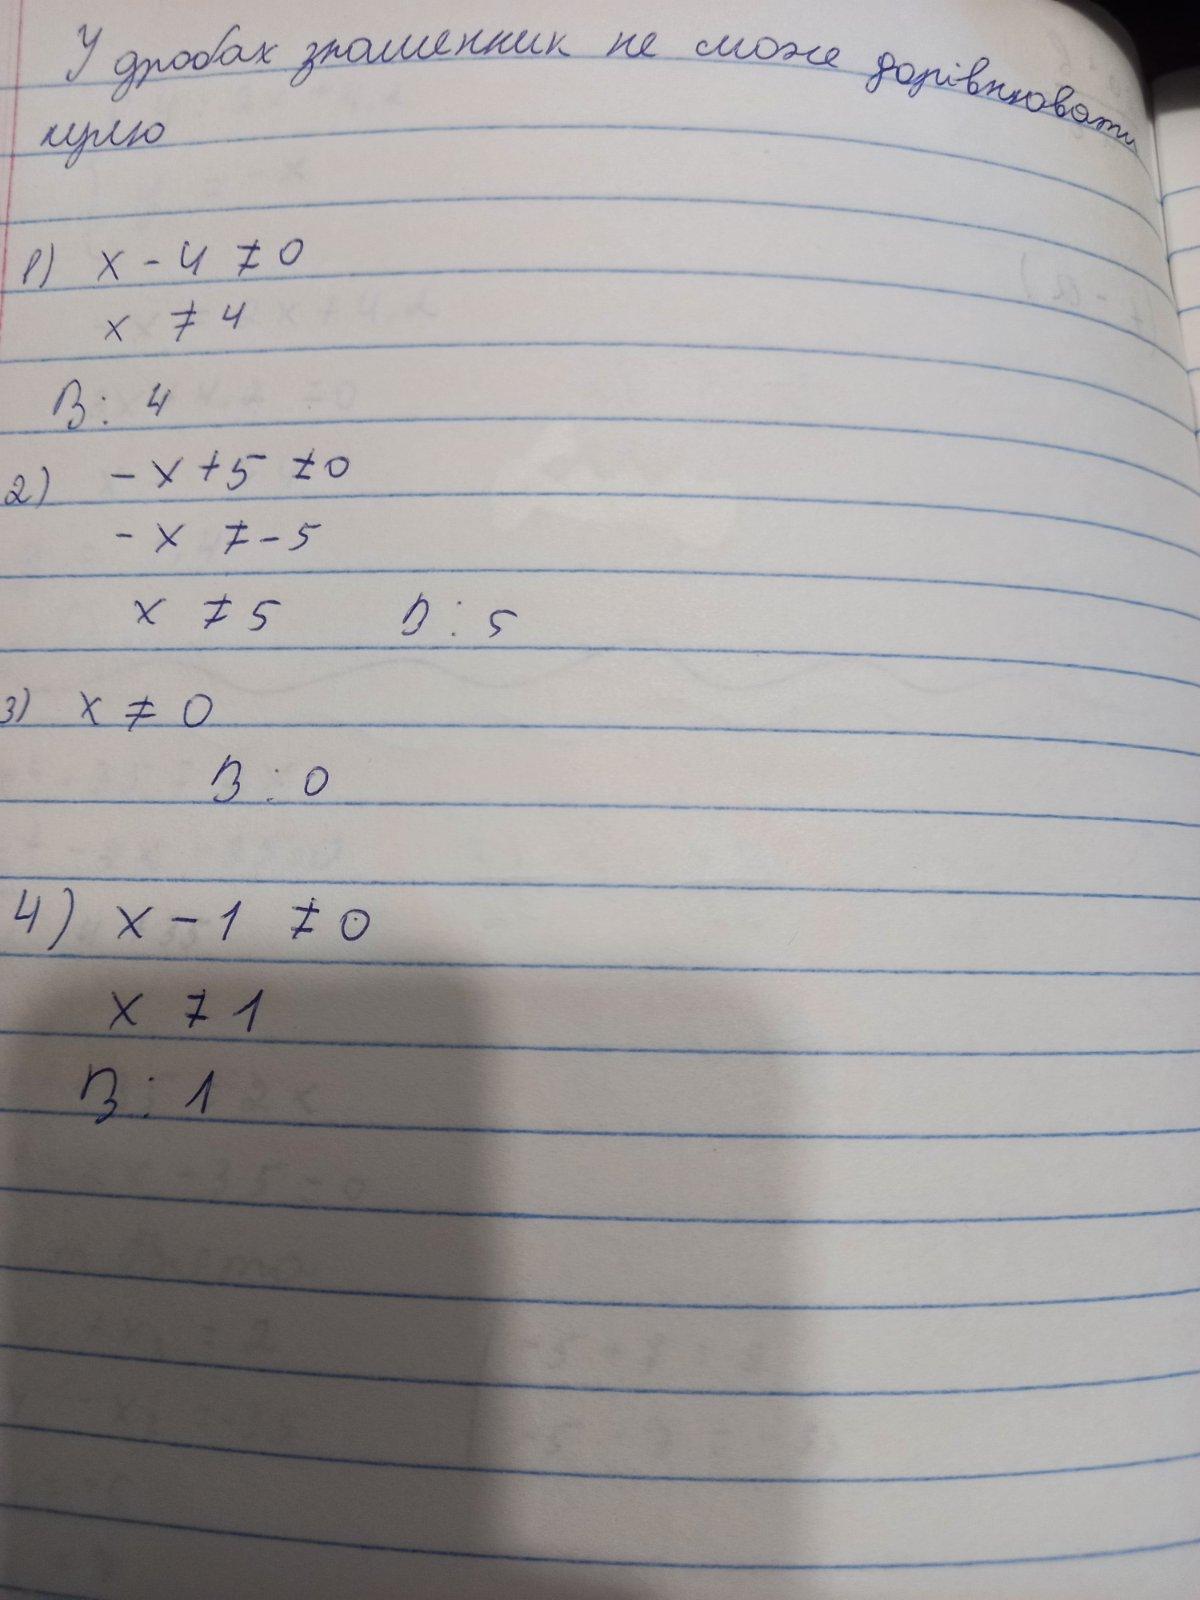 У дробах знаменник не може дорівнювати
нулю
1) x - 4 ≠ 0
x ≠ 4
В: 4
2) - x + 5 ≠ 0
- x ≠ - 5
x ≠ 5 В: 5
3) x ≠ 0
В: 0
4) x - 1 ≠ 0
x ≠ 1
В: 1